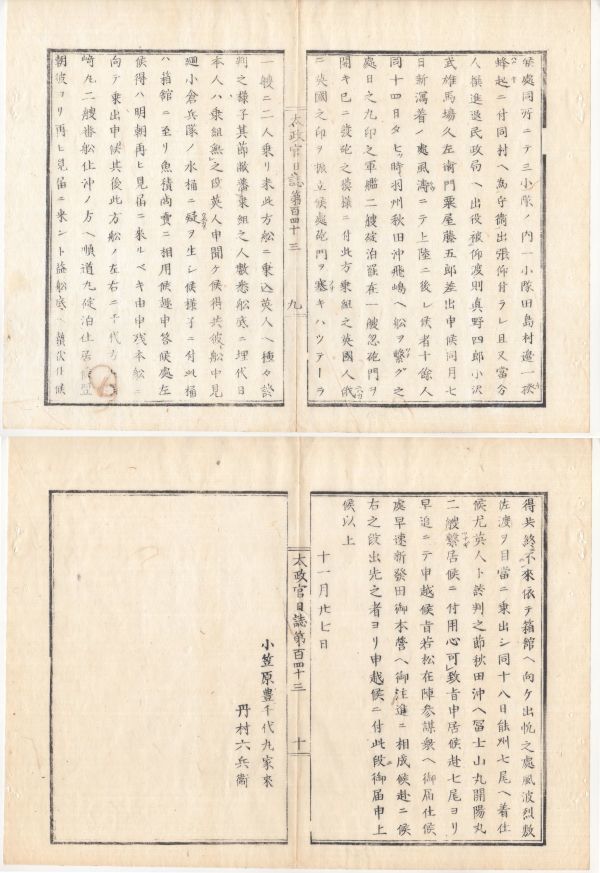 候處同所ニテ三小隊ノ内一小隊田島村邊一揆
蜂起ニ付同村ヘ爲守衛出張仰付ラレ且又當分
人撰進退民政局ヘ出役被仰渡則眞野四郎小沢
武雄馬場久左衛門粟屋藤五郎差出申候同月七
日新瀉着ノ處風濤ニテ上陸ニ後レ候者十餘人
同十四日夕七ツ時羽州秋田沖飛嶋ヘ船ヲ繋グ之
處日之丸印之軍艦二艘碇泊罷在一艘忽砲門ヲ
開キ已ニ發砲之模様ニ付此方乗組之英國人俄
ニ英國之印ヲ振立候處砲門ヲ塞キハツテーラ
一艘ニ二人乗リ来此方舩ニ乗込英人ヘ種々談
判之様子其節敝藩乗組之人數悉舩底ニ埋代日
本人ハ乗組無之段英人申聞ケ候得共彼舩中見
廻小倉兵隊ノ水桶ニ疑ヲ生シ候様子ニ付此桶
ハ箱館ニ至リ魚積商賣ニ相用候趣申答候處左
候得ハ明朝再ヒ見届ニ来ルベキ由申残本船ニ
向テ乗出申候其後此方舩ノ左右ニ千代
崎丸二艘
朝彼ヨリ再ヒ見届ニ来ント
太政官日誌第百四十三
九
得共終不來依テ箱館ヘ向ケ出帆之處風波烈敷
佐渡ヲ目當ニ乗出シ同十八日能州七尾ヘ着仕
候尤英人ト談判之節秋田沖ヘ冨士山丸開陽丸
二艘繋居候ニ付用心可致旨申居候趣七尾ヨリ
早追ニテ申越候旨若松在陣参謀衆ヘ御届仕候
處早速新發田御本營ヘ御注進ニ相成候趣ニ候
右之段出先之者ヨリ申越候ニ付此段御届申上
候以上
十一月廿七日
小笠原豊千代丸家来
丹村六兵衞
太政官日誌第百四十三
十